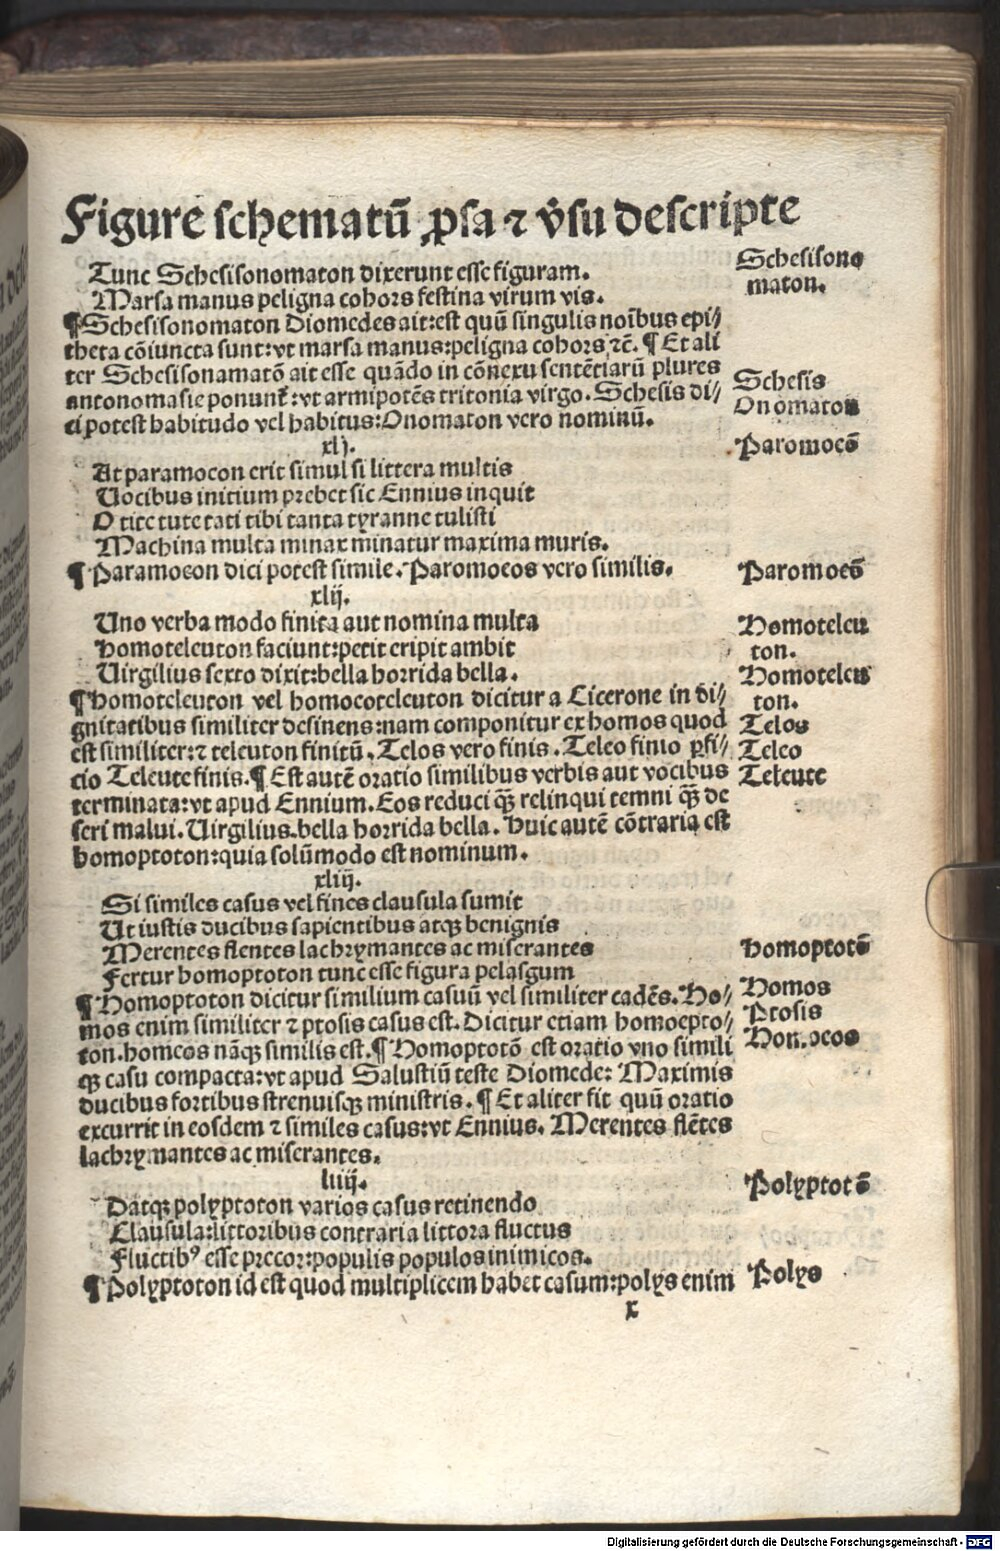 Figure schematū ꝓsa ⁊ v̊su descripte
Tunc Schesisonomaton dixerunt esse figuram.
Marsa manus peligna cohors festina virum vis.
¶Schesisonomaton Diomedes ait:est quū singulis noībus epi/
theta cōiuncta sunt:vt marsa manus:peligna cohors ⁊c̄. ¶ Et ali
ter Schesisonamatō ait esse quādo in cōnexu sentētiarū plures
antonomasie ponunt᷑:vt armipotēs tritonia virgo. Schesis di/
ci potest habitudo vel habitus:Onomaton vero nominū.
xlj.
At paramoeon erit simul si littera multis
Vocibus initium prebet sic Ennius inquit
O tite tute tati tibi tanta tyranne tulisti
Machina multa minax minatur maxima muris.
¶ Paramoeon dici potest simile. Paromoeos vero similis.
xlij.
Uno verba modo finita aut nomina multa
Homoteleuton faciunt:petit eripit ambit
Uirgilius sexto dixit:bella horrida bella.
¶Homoteleuton vel homoeoteleuton dicitur a Cicerone in di/
gnitatibus similiter desinens:nam componitur ex homos quod
est similiter:⁊ teleuton finitū. Telos vero finis. Teleo finio ꝑfi/
cio Teleute finis.¶ Est autē oratio similibus verbis aut vocibus
terminata:vt apud Ennium. Eos reduci qꝫ̄ relinqui temni qꝫ̄ de
seri malui. Uirgilius.bella horrida bella. Huic autē cōtraria est
homoptoton:quia solūmodo est nominum.
xliij.
Si similes casus vel fines clausula sumit
Ut iustis ducibus sapientibus atqꝫ benignis
Merentes flentes lachrymantes ac miserantes
Fertur homoptoton tunc esse figura pelasgum
¶Homoptoton dicitur similium casuū vel similiter cadēs. Ho/
mos enim similiter ⁊ ptosis casus est. Dicitur etiam homoepto/
ton.homeos nāqꝫ similis est.¶ Homoptotō est oratio vno simili
qꝫ casu compacta:vt apud Salustiū teste Diomede: Maximis
ducibus fortibus strenuisqꝫ ministris. ¶ Et aliter fit quū oratio
excurrit in eosdem ⁊ similes casus:vt Ennius. Merentes flētes
lachrymantes ac miserantes.
liiij.
Datqꝫ polyptoton varios casus retinendo
Clausula:littoribus contraria littora fluctus
Fluctibꝰ esse precor:populis populos inimicos.
¶Polyptoton id est quod multiplicem habet casum:polys enim
x
Schesisono
maton.
Schesis
Onomaton
Paromoeō
Paromoeō
Homoteleu
ton.
Homoteleu
ton.
Telos
Teleo
Teleute
Homoptotō
Homos
Ptosis
Homoeos
Polyptotō
Polys
Digitalisierung gefördert durch die Deutsche Forschungsgemeinschaft - DFG